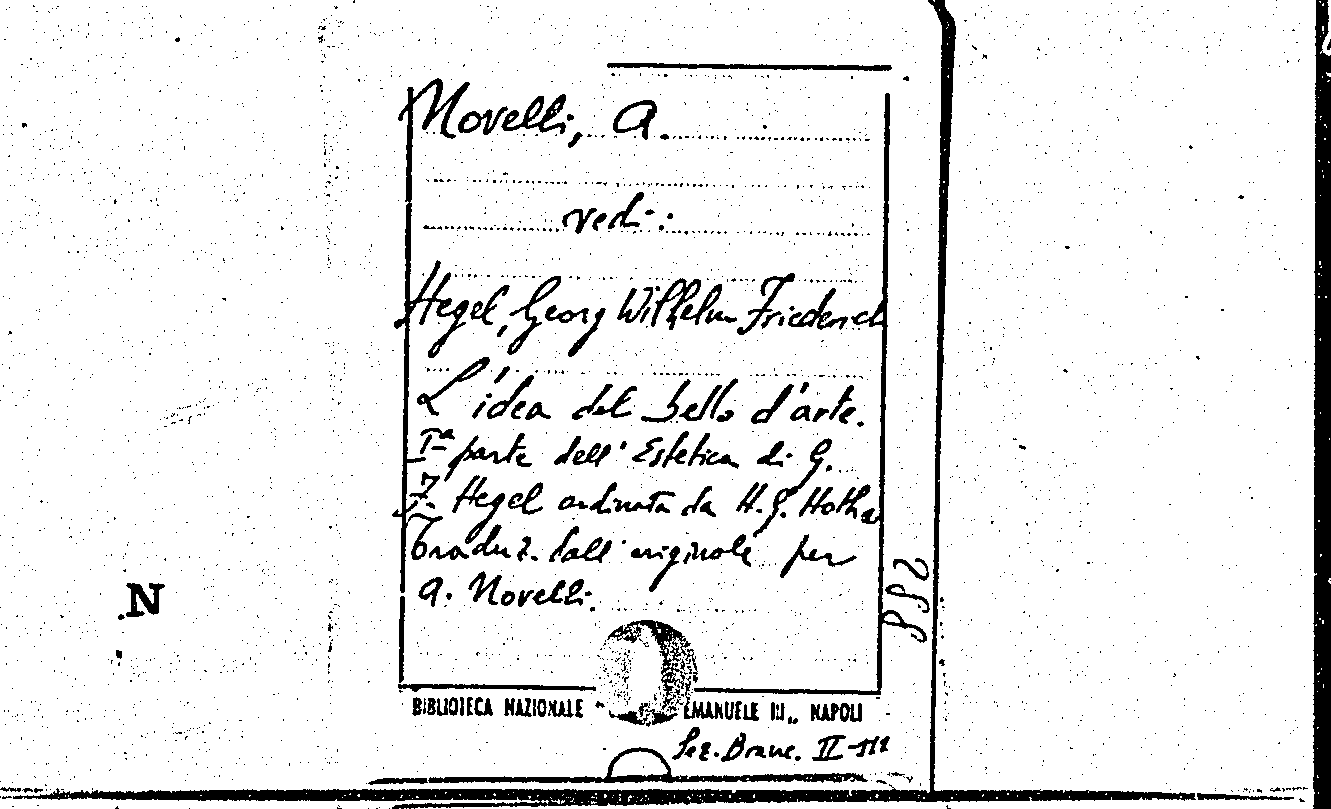 Novelli, A.
vedi:
Hegel, Georg Wilhelm Friederich
L'idea del bello d'arte.
Iª parte dell'Estetica di G.
F. Hegel ordinata da H. G. Hotho
Traduz. dall'originale per
A. Novelli.
N
BIBLIOTECA NAZIONALE " EMANUELE III" NAPOLI
Sez. Branc. II